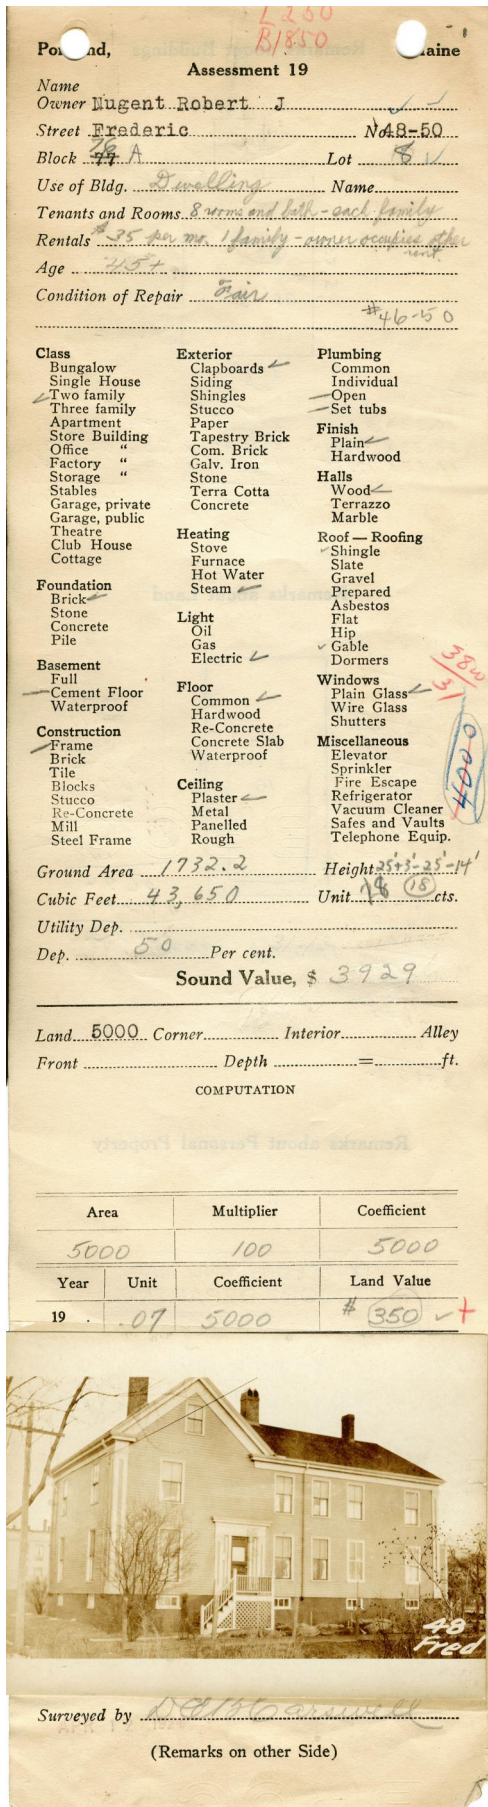 L 250
B 1850
Portland, Maine
Assessment 19
Name
Owner Nugent Robert J
Street Frederic No 48-50
Block 77 76 A Lot 8
Use of Bldg. Dwelling Name
Tenants and Rooms 8 rooms and bath - each family
Rentals $35 per mo. 1 family - owner occupies other
rent.
Age 45+
Condition of Repair Fair
#46-50
Class
Bungalow
Single House
Two family
Three family
Apartment
Store Building
Office "
Factory "
Storage "
Stables
Garage, private
Garage, public
Theatre
Club House
Cottage
Foundation
Brick
Stone
Concrete
Pile
Basement
Full
Cement Floor
Waterproof
Construction
Frame
Brick
Tile
Blocks
Stucco
Re-Concrete
Mill
Steel Frame
Exterior
Clapboards
Siding
Shingles
Stucco
Paper
Tapestry Brick
Com. Brick
Galv. Iron
Stone
Terra Cotta
Concrete
Heating
Stove
Furnace
Hot Water
Steam
Light
Oil
Gas
Electric
Floor
Common
Hardwood
Re-Concrete
Concrete Slab
Waterproof
Ceiling
Plaster
Metal
Panelled
Rough
Plumbing
Common
Individual
Open
Set tubs
Finish
Plain
Hardwood
Halls
Wood
Terrazzo
Marble
Roof — Roofing
Shingle
Slate
Gravel
Prepared
Asbestos
Flat
Hip
Gable
Dormers
Windows
Plain Glass
Wire Glass
Shutters
Miscellaneous
Elevator
Sprinkler
Fire Escape
Refrigerator
Vacuum Cleaner
Safes and Vaults
Telephone Equip.
3800
31
4000
Ground Area 1732.2 Height 25'+3'-25'-14'
Cubic Feet 43,650 Unit 18 18 cts.
Utility Dep.
Dep. 50 Per cent.
Sound Value, $ 3929
Land 5000 Corner Interior Alley
Front Depth = ft.
COMPUTATION
Area Multiplier Coefficient
5000 100 5000
Year Unit Coefficient Land Value
19 . .07 5000 $ 350
48
Fred
Surveyed by Carswell
(Remarks on other Side)